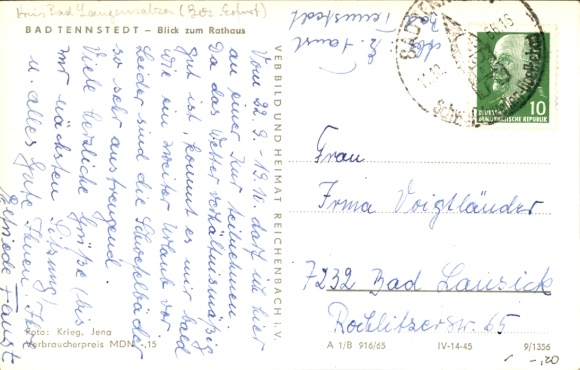 Kreis Bad Langensalza (Bez. Erfurt)
BAD TENNSTEDT — Blick zum Rathaus
Vom 22.9. - 19.10. darf ich hier
an einer Kur teilnehmen.
Da das Wetter verhältnismäßig
gut ist, kommt es mir bald
wie ein zweiter Urlaub vor.
Leider sind die Schwefelbäder
so sehr anstrengend.
Viele herzliche Grüße (bis
zur nächsten Sitzung)
u. alles Gute Ihnen. Ihre
Faust
Foto: Krieg, Jena
Verbraucherpreis MDN -,15
VEB BILD UND HEIMAT REICHENBACH i. V.
Faust
Bad
Tennstedt
BAD TENN
DEUTSCHE
DEMOKRATISCHE REPUBLIK
10
Frau
Irma Voigtländer
7232 Bad Lausick
Rochlitzerstr. 65
A 1/B 916/65 IV-14-45 9/1356
-,20